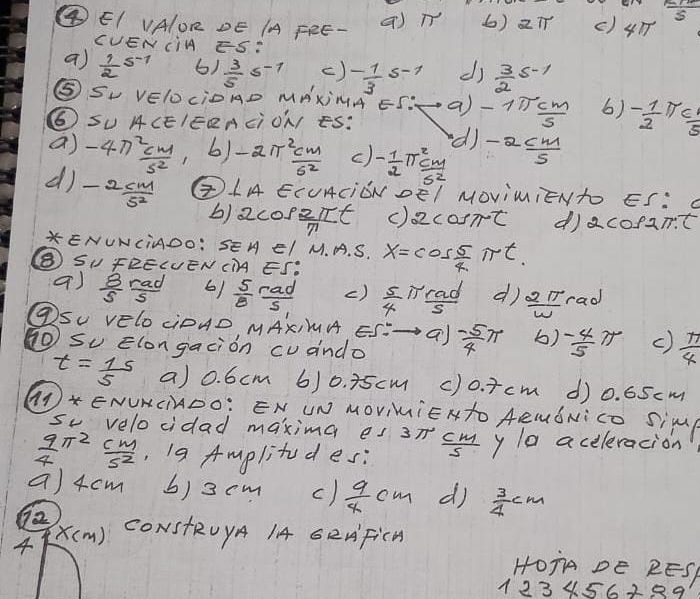 ④ El VALOR DE LA FRE- a) π b) 2π c) 4π
CUENCIA ES:
a) 1/2 s⁻¹ b) 3/5 s⁻¹ c) -1/3 s⁻¹ d) 3/2 s⁻¹
⑤ SU VELOCIDAD MÁXIMA ES: → a) -1π cm/s b) -1/2 π
⑥ SU ACELERACIÓN ES: d) -2 cm/s
a) -4π² cm/s², b) -2π² cm/s² c) -1/2 π² cm/s²
d) -2 cm/s² ⑦ LA ECUACIÓN DEL MOVIMIENTO ES:
b) 2cos 2π/π t c) 2cosπt d) 2cos2π.t
*ENUNCIADO: SEA El M.A.S. X=cos 5/4 πt.
⑧ SU FRECUENCIA ES:
a) 8/5 rad/s b) 5/8 rad/s c) 5/4 π rad/s d) 2π/w rad
⑨ SU VELOCIDAD MÁXIMA ES: → a) -5/4 π b) -4/5 π c) π/4
⑩ SU Elongación cuándo
t = 1/5 s a) 0.6cm b) 0.75cm c) 0.7cm d) 0.65cm
⑪ * ENUNCIADO: EN UN MOVIMIENTO ARMÓNICO Simp
su velocidad máxima es 3π cm/s y la aceleración
9/4 π² cm/s², la Amplitud es:
a) 4cm b) 3cm c) 9/4 cm d) 3/4 cm
⑫ CONSTRUYA LA GRÁFICA
4 X(cm)
HOJA DE RESP
1 2 3 4 5 6 7 8 9